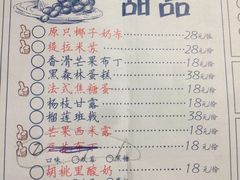 甜品
原只椰子奶冻 28元/位
缇拉米苏 28元/份
香滑芒果布丁 18元/份
黑森林蛋糕 38元/份
法式焦糖蛋 18元/份
杨枝甘露 18元/份
榴莲班戟 38元/份
芒果西米露 18元/份
18元/份
口味
胡桃里酸奶 18元/份